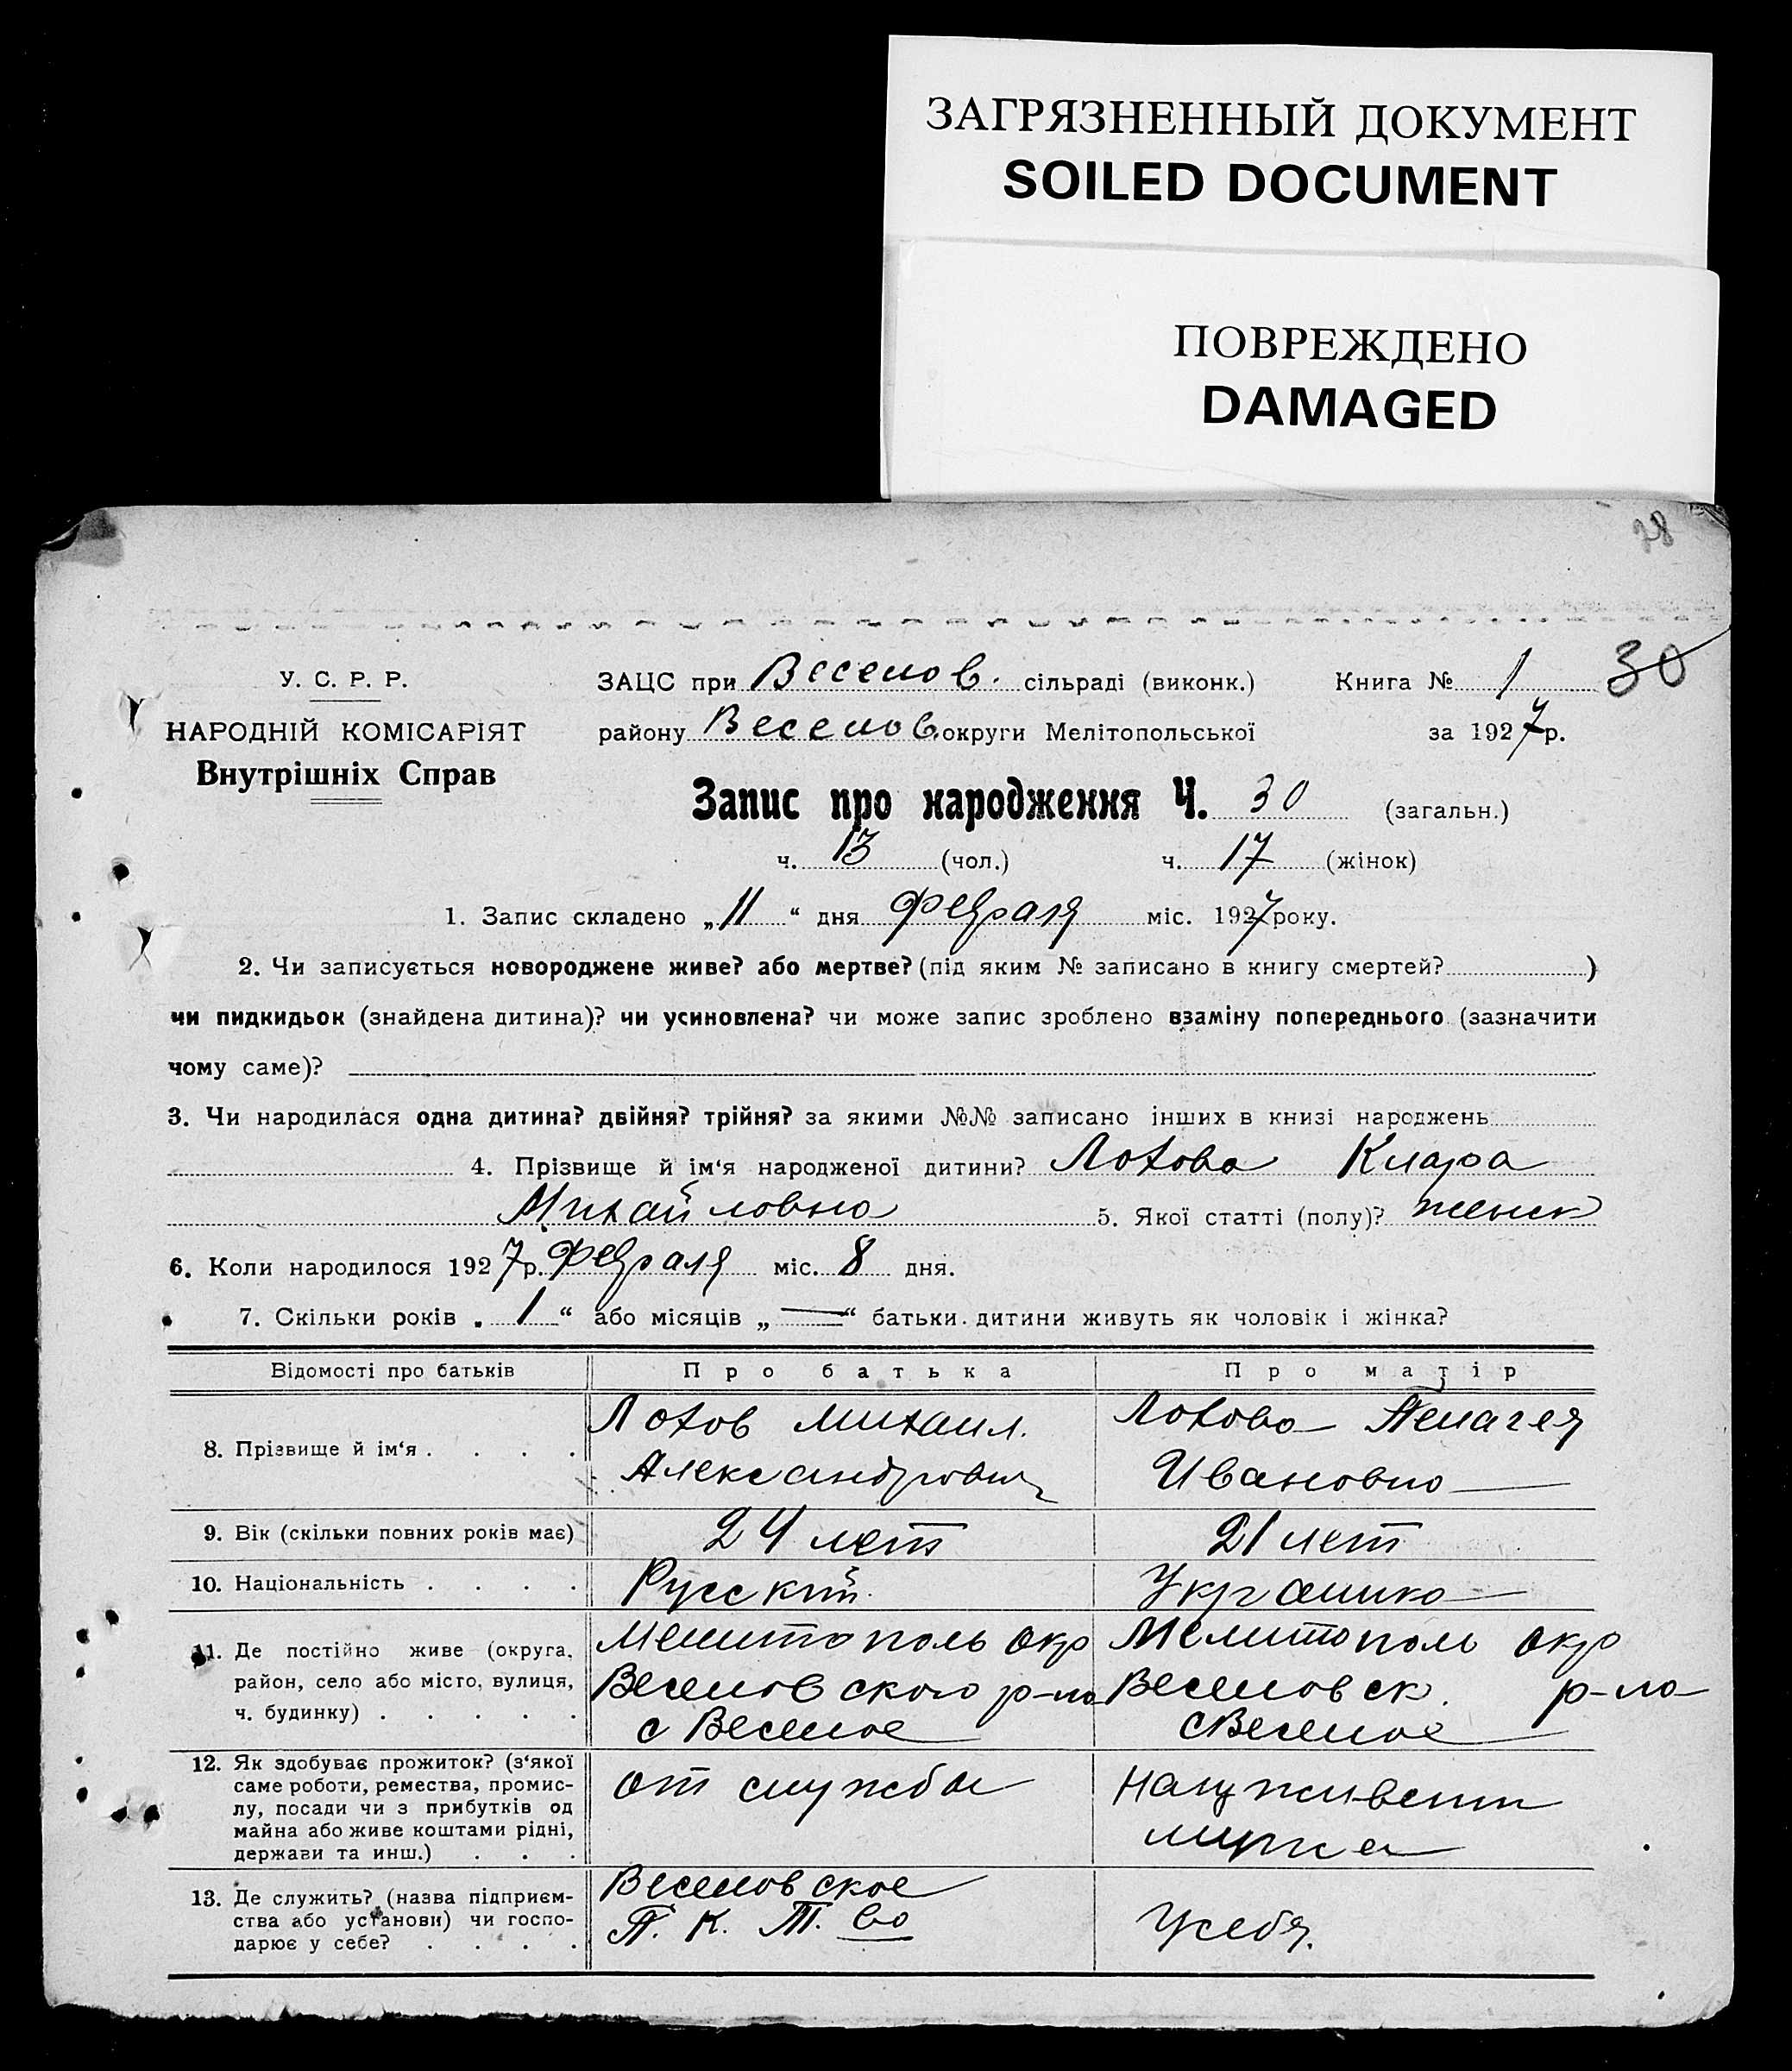 ЗАГРЯЗНЕННЫЙ ДОКУМЕНТ
SOILED DOCUMENT
ПОВРЕЖДЕНО
DAMAGED
У. С. Р. Р.
НАРОДНІЙ КОМІСАРІЯТ
Внутрішніх Справ
ЗАЦС при Веселов. сільраді (виконк.) Книга № 1 30
району Веселов. округи Мелітопольської за 1927р.
Запис про народження Ч. 30 (загальн.)
ч. 13 (чол.) ч. 17 (жінок)
1. Запис складено „11“ дня февраля міс. 1927 року.
2. Чи записується новороджене живе? або мертве? (під яким № записано в книгу смертей? )
чи пидкидьок (знайдена дитина)? чи усиновлена? чи може запис зроблено взаміну попереднього (зазначити
чому саме)?
3. Чи народилася одна дитина? двійня? трійня? за якими №№ записано інших в книзі народжень
4. Прізвище й ім‘я народженої дитини? Лохова Клара
Михайловна 5. Якої статті (полу)? женск
6. Коли народилося 1927р. февраля міс. 8 дня.
7. Скільки років „1“ або місяців „—“ батьки дитини живуть як чоловік і жінка?
Відомості про батьків Про батька Про матір
8. Прізвище й ім‘я . . . . Лохов Михаил. Лохова Пелагея
Александрович Ивановна
9. Вік (скільки повних років має) 24 лет 21 лет
10. Національність . . . . Русский Украинка
11. Де постійно живе (округа, Мелитополь окр Мелитополь окр
район, село або місто, вулиця, Веселовского р-на Веселовск. р-на
ч. будинку) . . . . . с Веселое с Веселое
12. Як здобуває прожиток? (з‘якої
саме роботи, ремества, промис- от службы На иждивении
лу, посади чи з прибутків од
майна або живе коштами рідні, мужа
держави та инш.) . . .
13. Де служить? (назва підприєм- Веселовское
ства або установи) чи госпо- П. К. Т. во У себя.
дарює у себе? . . . .